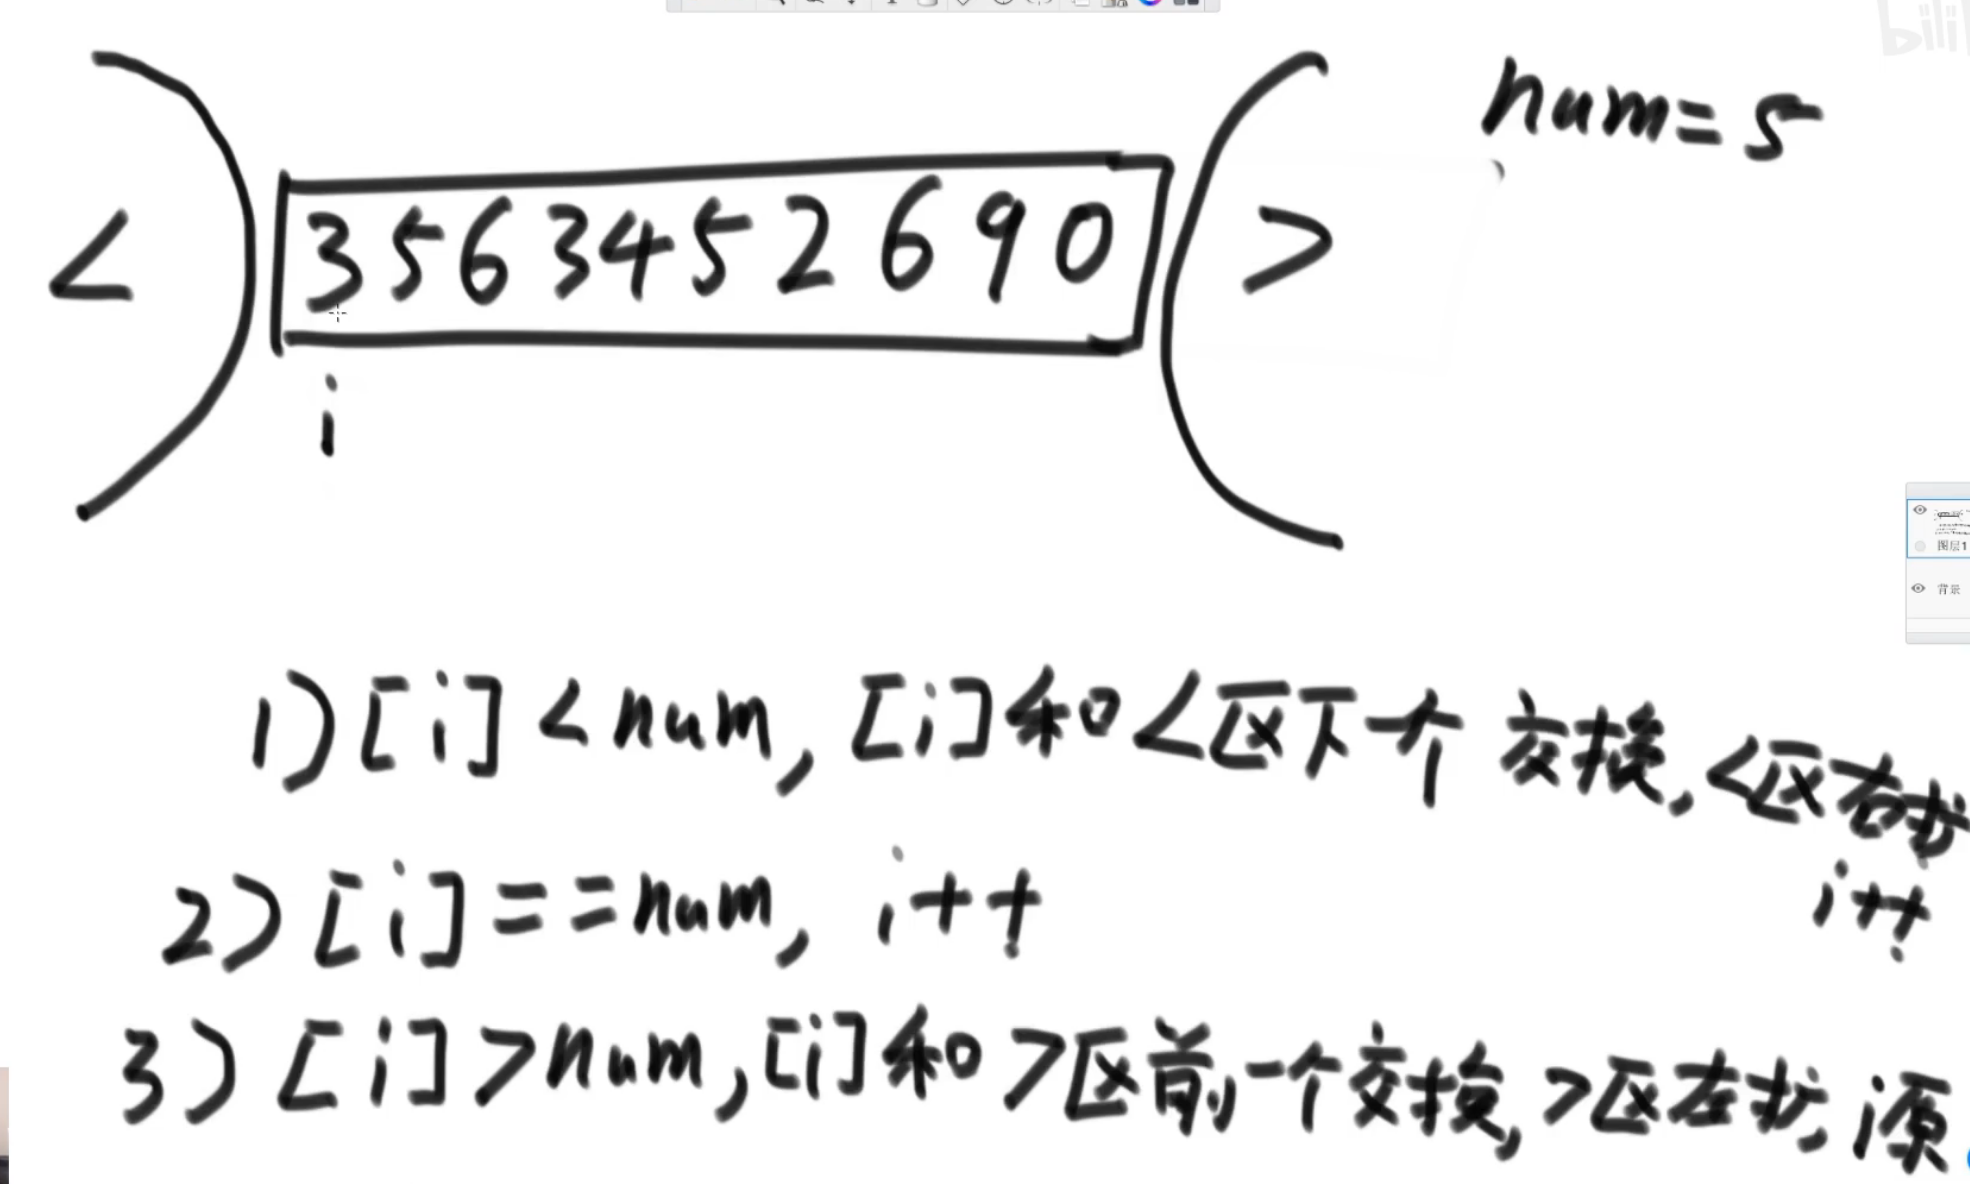 bili
num=5
< 3 5 6 3 4 5 2 6 9 0 >
i
图层1
背景
1) [i] < num, [i]和<区下一个 交换, <区右扩
i++
2) [i] == num, i++
3) [i] > num, [i]和>区前一个交换, >区左扩, i原